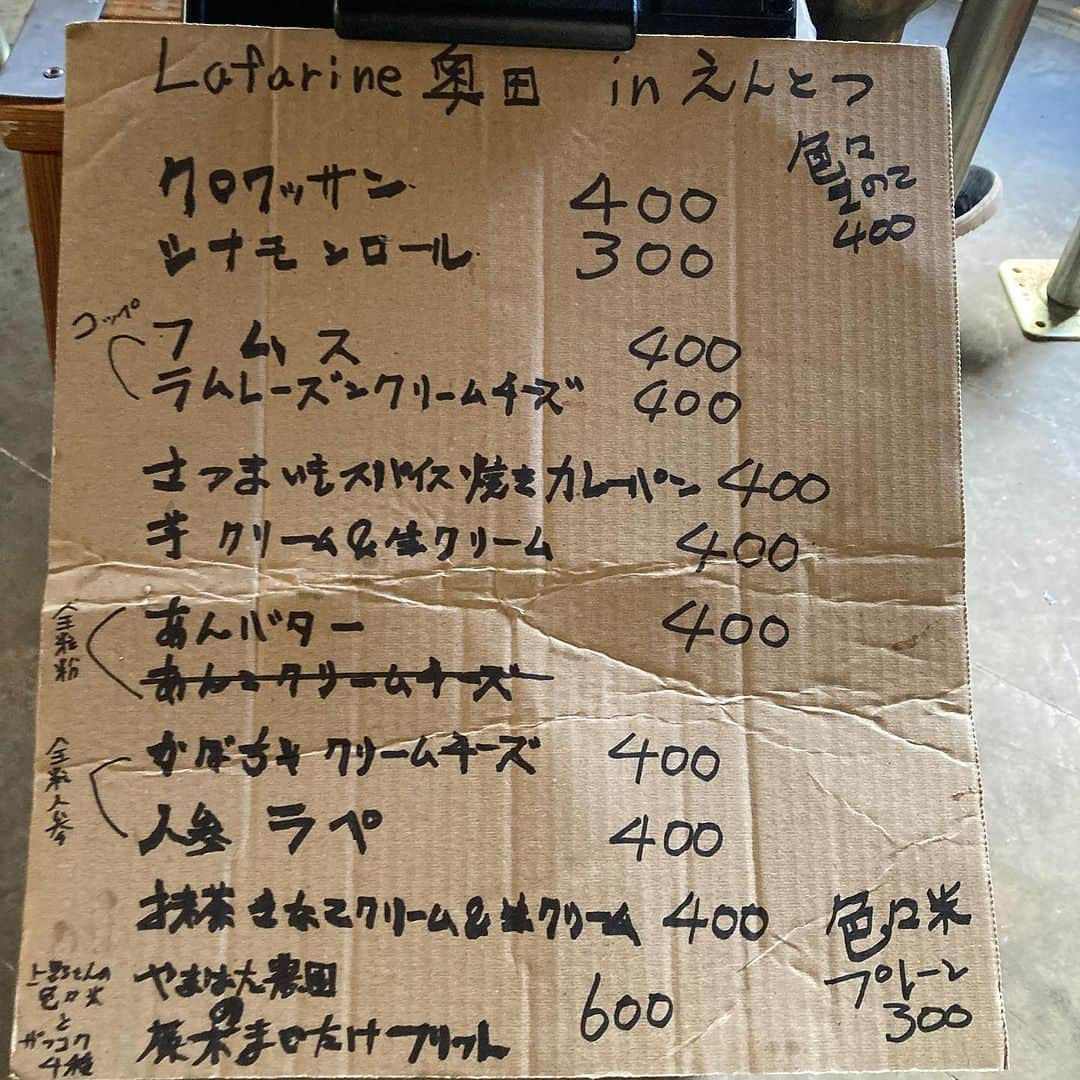 Lafarine 奥田 in えんとつ
クロワッサン 400
シナモンロール 300
色々
きのこ
400
コッペ
フムス 400
ラムレーズンクリームチーズ 400
さつまいもスパイス焼きカレーパン 400
芋クリーム&生クリーム 400
全粒粉
あんバター 400
あんこクリームチーズ
全粒人参
かぼちゃクリームチーズ 400
人参ラペ 400
抹茶きなこクリーム&生クリーム 400
色々米
プレーン
300
色々米
と
ザッコク
4種
やまはた農園 600
の原木まいたけフリット